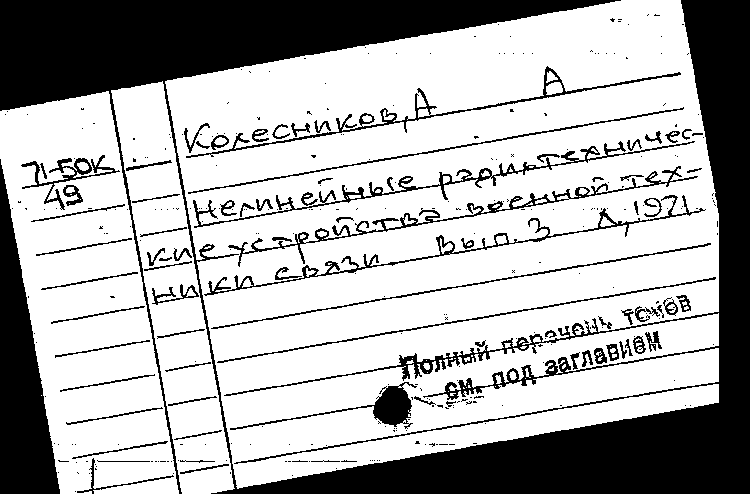 Колесников, А А
71-БОК
49
Нелинейные радиотехничес-
кие устройства военной тех-
ники связи. Вып. 3 Л., 1971.
Полный перечень томов
см. под заглавием